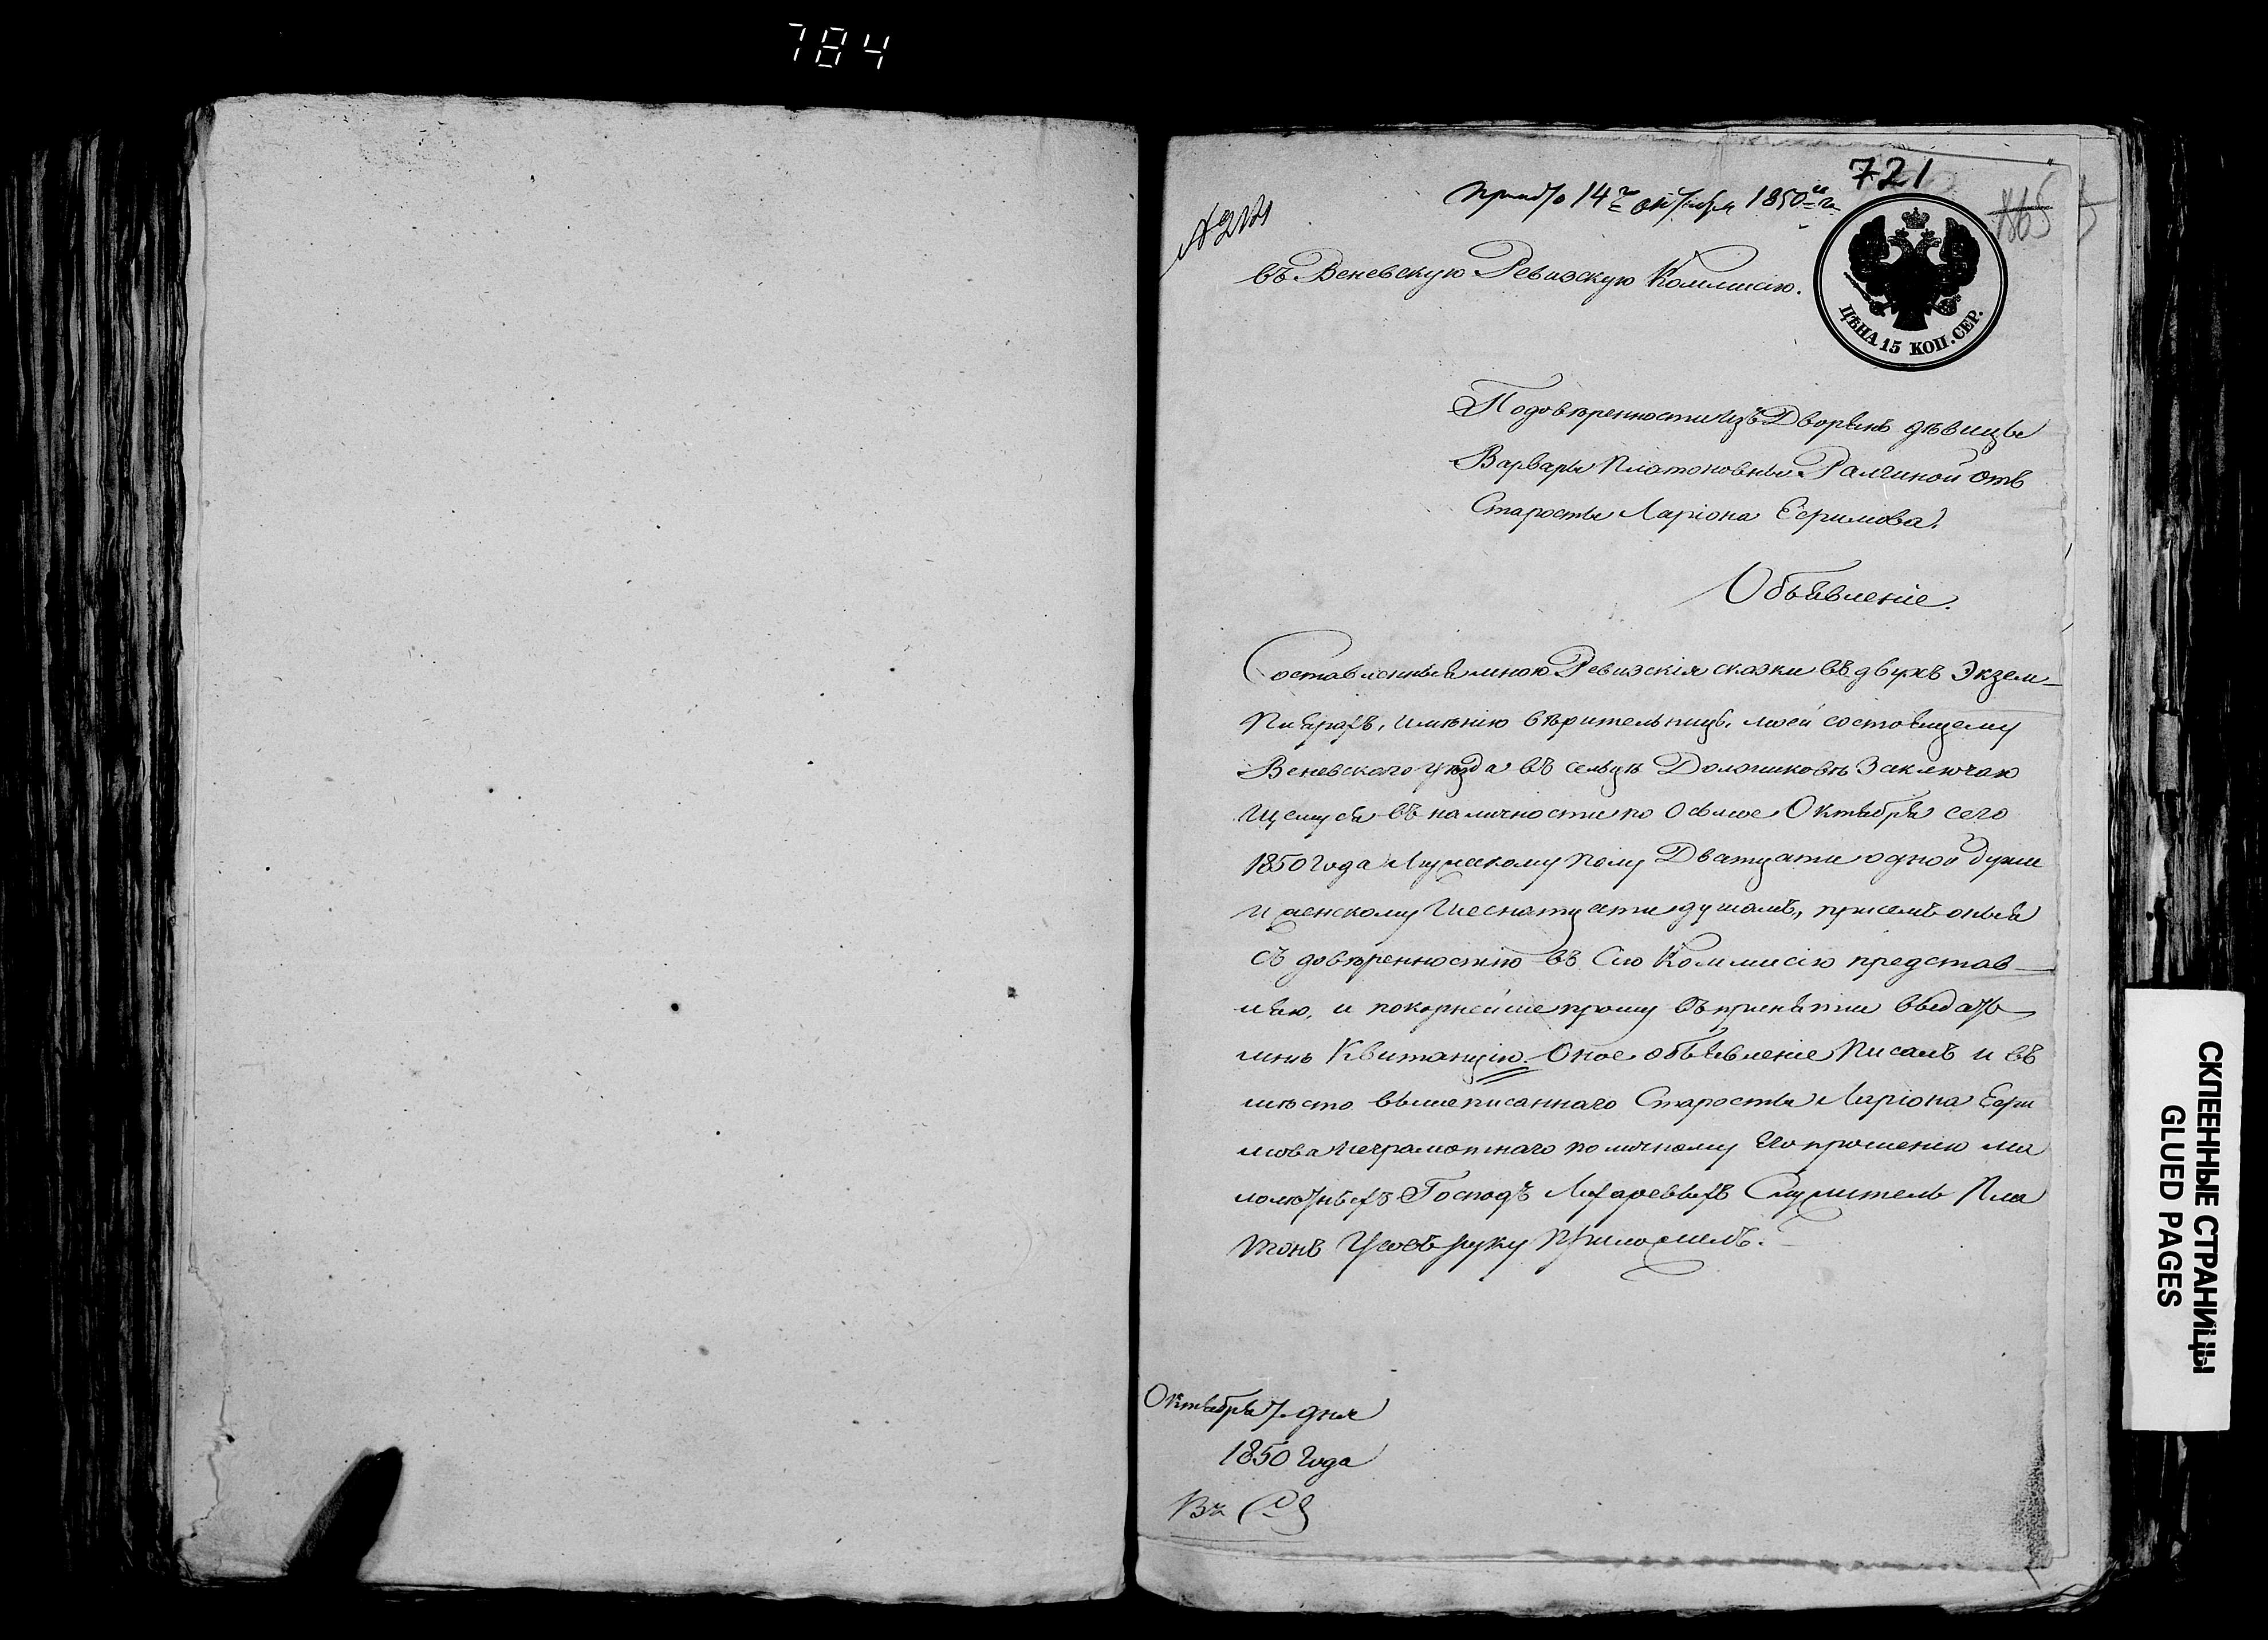 784
721
165
№ 
Прин҃то 14го октября 1850го го.
въ Веневскую Ревизскую Коммисію.
ЦѢНА 15 КОП. СЕР.
По довѣренности изъ Дворянъ дѣвицы
Варвары Платоновны Ралгиной отъ
Старосты Ларіона Ефимова.
Объявленіе.
Составленныя мною Ревизскія сказки въ двухъ Экзем-
плярахъ, имѣнію вѣрительницы моей состоящему
Веневскаго уѣзда въ сельцѣ Должиковѣ Заключаю
щемуся въ наличности по Осьмое Октября сего
1850 года Мужскому полу Дватцати одной души
и женскому Шеснатцати душамъ, присемъ оныя
съ довѣренностію въ Сію Коммисію представ-
ляю, и покорнейше прошу въ принятіи выдать
мнѣ Квитанцію. Оное объявленіе Писалъ и въ
мѣсто вышеписаннаго Старосты Ларіона Ефи
мова неграмотнаго по личному его прошенію ма
лолютныхъ Господъ Лихаревыхъ Служитель Пла
тонъ Усовъ руку Приложилъ.
Октября 7 дня
1850 года
СКЛЕЕННЫЕ СТРАНИЦЫ
GLUED PAGES